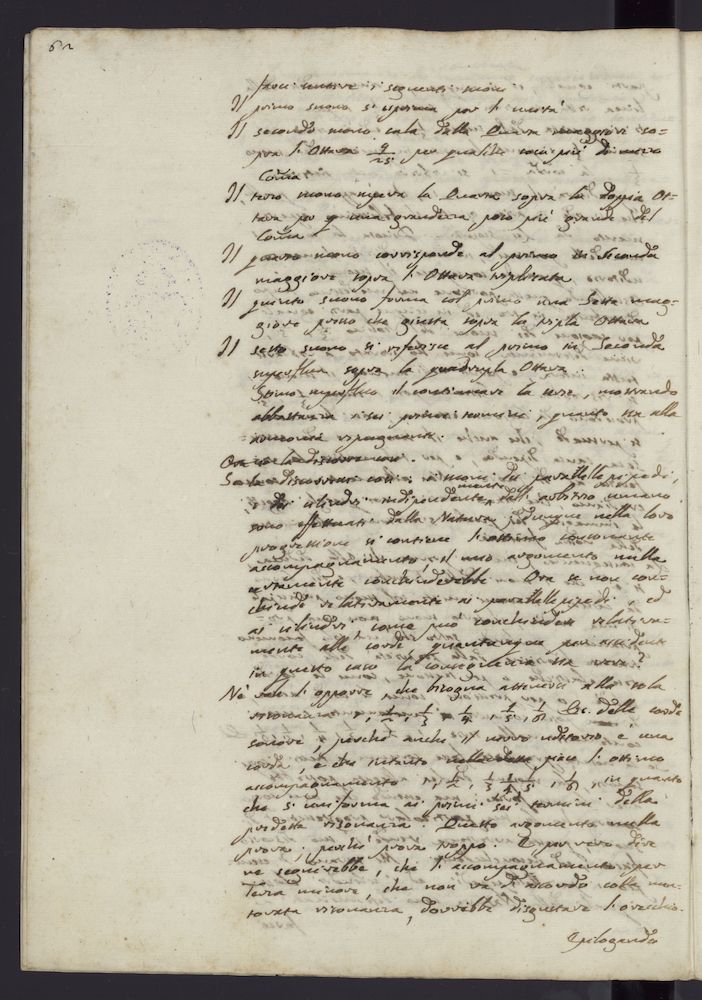 62
suoi intieri i seguenti suoni
Il primo suono si esprima per l'unità
Il secondo suono cala dalla Quarta maggiore so=
pra l'Ottava 9/25 per qualità cosa più di mezzo
Coma
Il terzo suono supera la Quarta sopra la doppia Ot=
tava per una grandezza poco più grande del
Coma
Il quarto suono corrisponde al primo in Seconda
maggiore sopra l'Ottava triplicata
Il quinto suono forma col primo una Sesta mag=
giore più che giusta sopra la tripla Ottava
Il sesto suono si riferisce al primo in Seconda
superflua sopra la quadrupla Ottava.
Stimo superfluo il continuare la serie, mostrando
abbastanza i sei primi termini, quanto sia alla
armonia ripugnante.
Ora se la dissonanza.
Se la discorressi così: i suoni dei parallelepipedi,
e dei cilindri indipendentemente dall'arbitrio umano
sono effettuati dalla Natura; dunque nella loro
progressione si contiene l'ottimo consonante
accompagnamento, il mio argomento nulla
certamente conchiuderebbe. Ora se non con=
chiude relativamente ai parallelepipedi ed
ai cilindri, come può conchiudere relativa=
mente alle corde, quantunque per accidente
in questo caso la conseguenza sia vera?
Nè vale l'opporre, che bisogna attenersi alla sola
risonanza 1, 1/2, 1/3, 1/4, 1/5, 1/6 &c. delle corde
sonore, perchè anche il nervo uditorio è una
corda, e che intanto piace l'ottimo
accompagnamento 1, 1/2, 1/3, 1/4, 1/5, 1/6, in quanto
che s'uniforma ai primi sei termini della
predetta risonanza. Questo argomento nulla
prova, perchè prova troppo. E per vero dire
ne seguirebbe, che l'accompagnamento per
Terza minore, che non va d'accordo colla men=
tovata risonanza, dovrebbe disgustare l'orecchio.
Epilogando